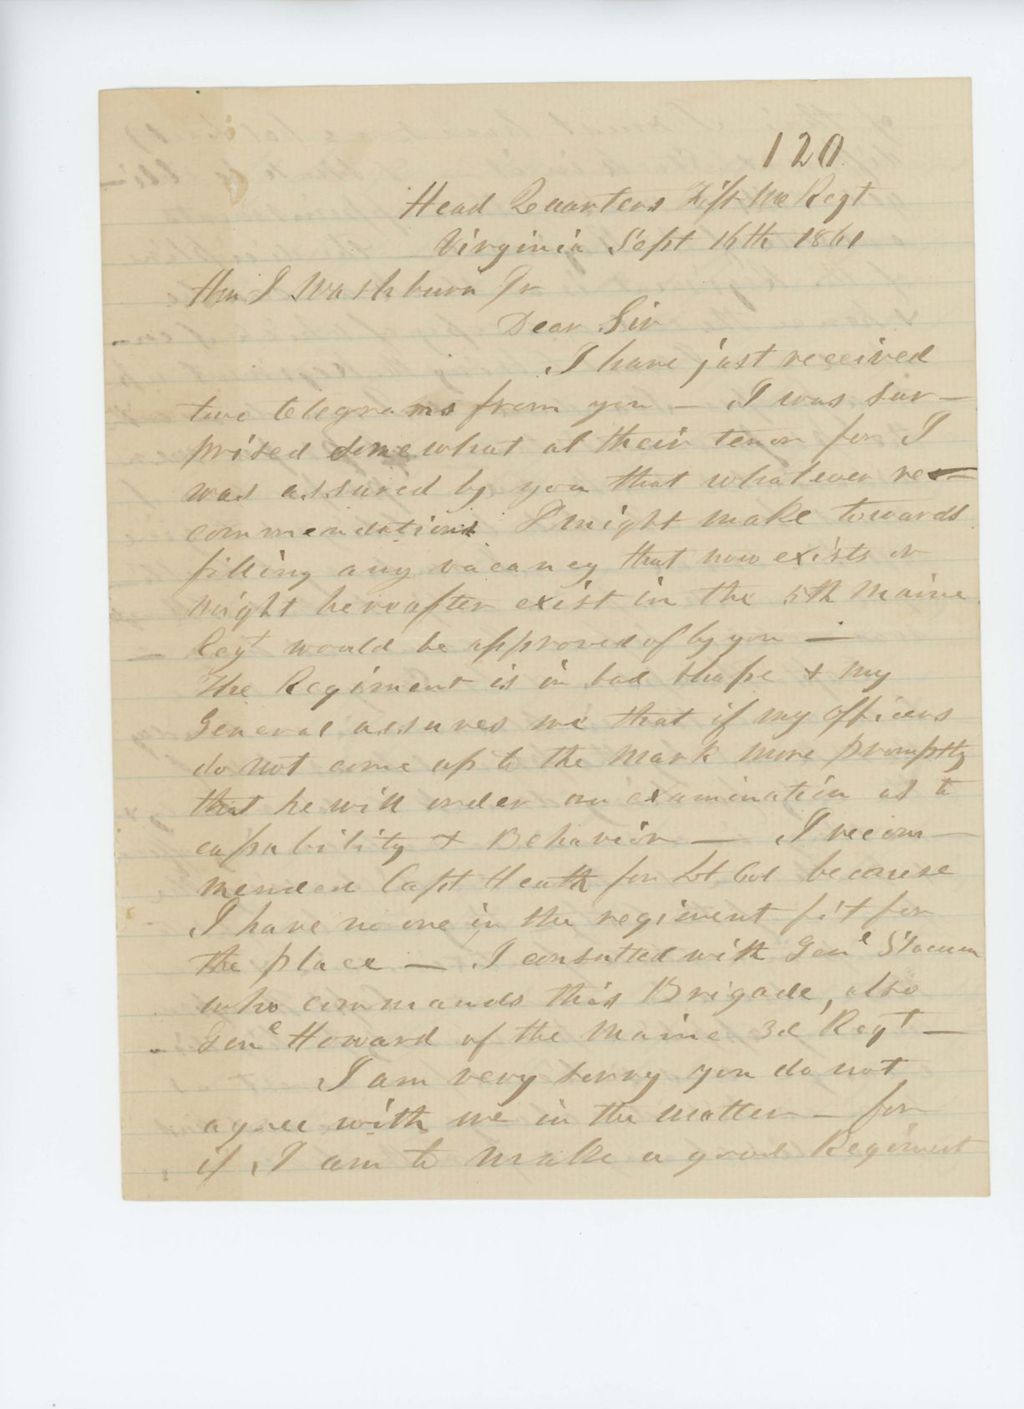 120
Head Quarters Fift Me Regt
Virginia Sept 16th 1861
Hon I Washburn Jr
Dear Sir
I have just received
two telegrams from you — I was sur-
prised somewhat at their tenor for I
was assured by you that whatever re-
commendations I might make towards
filling any vacancy that now exists or
might hereafter exist in the 5th Maine
Regt would be approved of by you —
The Regiment is in bad shape & my
General assures me that if my Officers
do not come up to the mark more promptly
that he will order an examination as to
capability & Behavior — I recom-
mended Capt Heath for Lt Col because
I have no one in the regiment fit for
the place — I consulted with Genl Slocum
who commands this Brigade, also
Genl Howard of the Maine 3d Regt —
I am very sorry you do not
agree with me in the matter — for
if I am to make a good Regiment